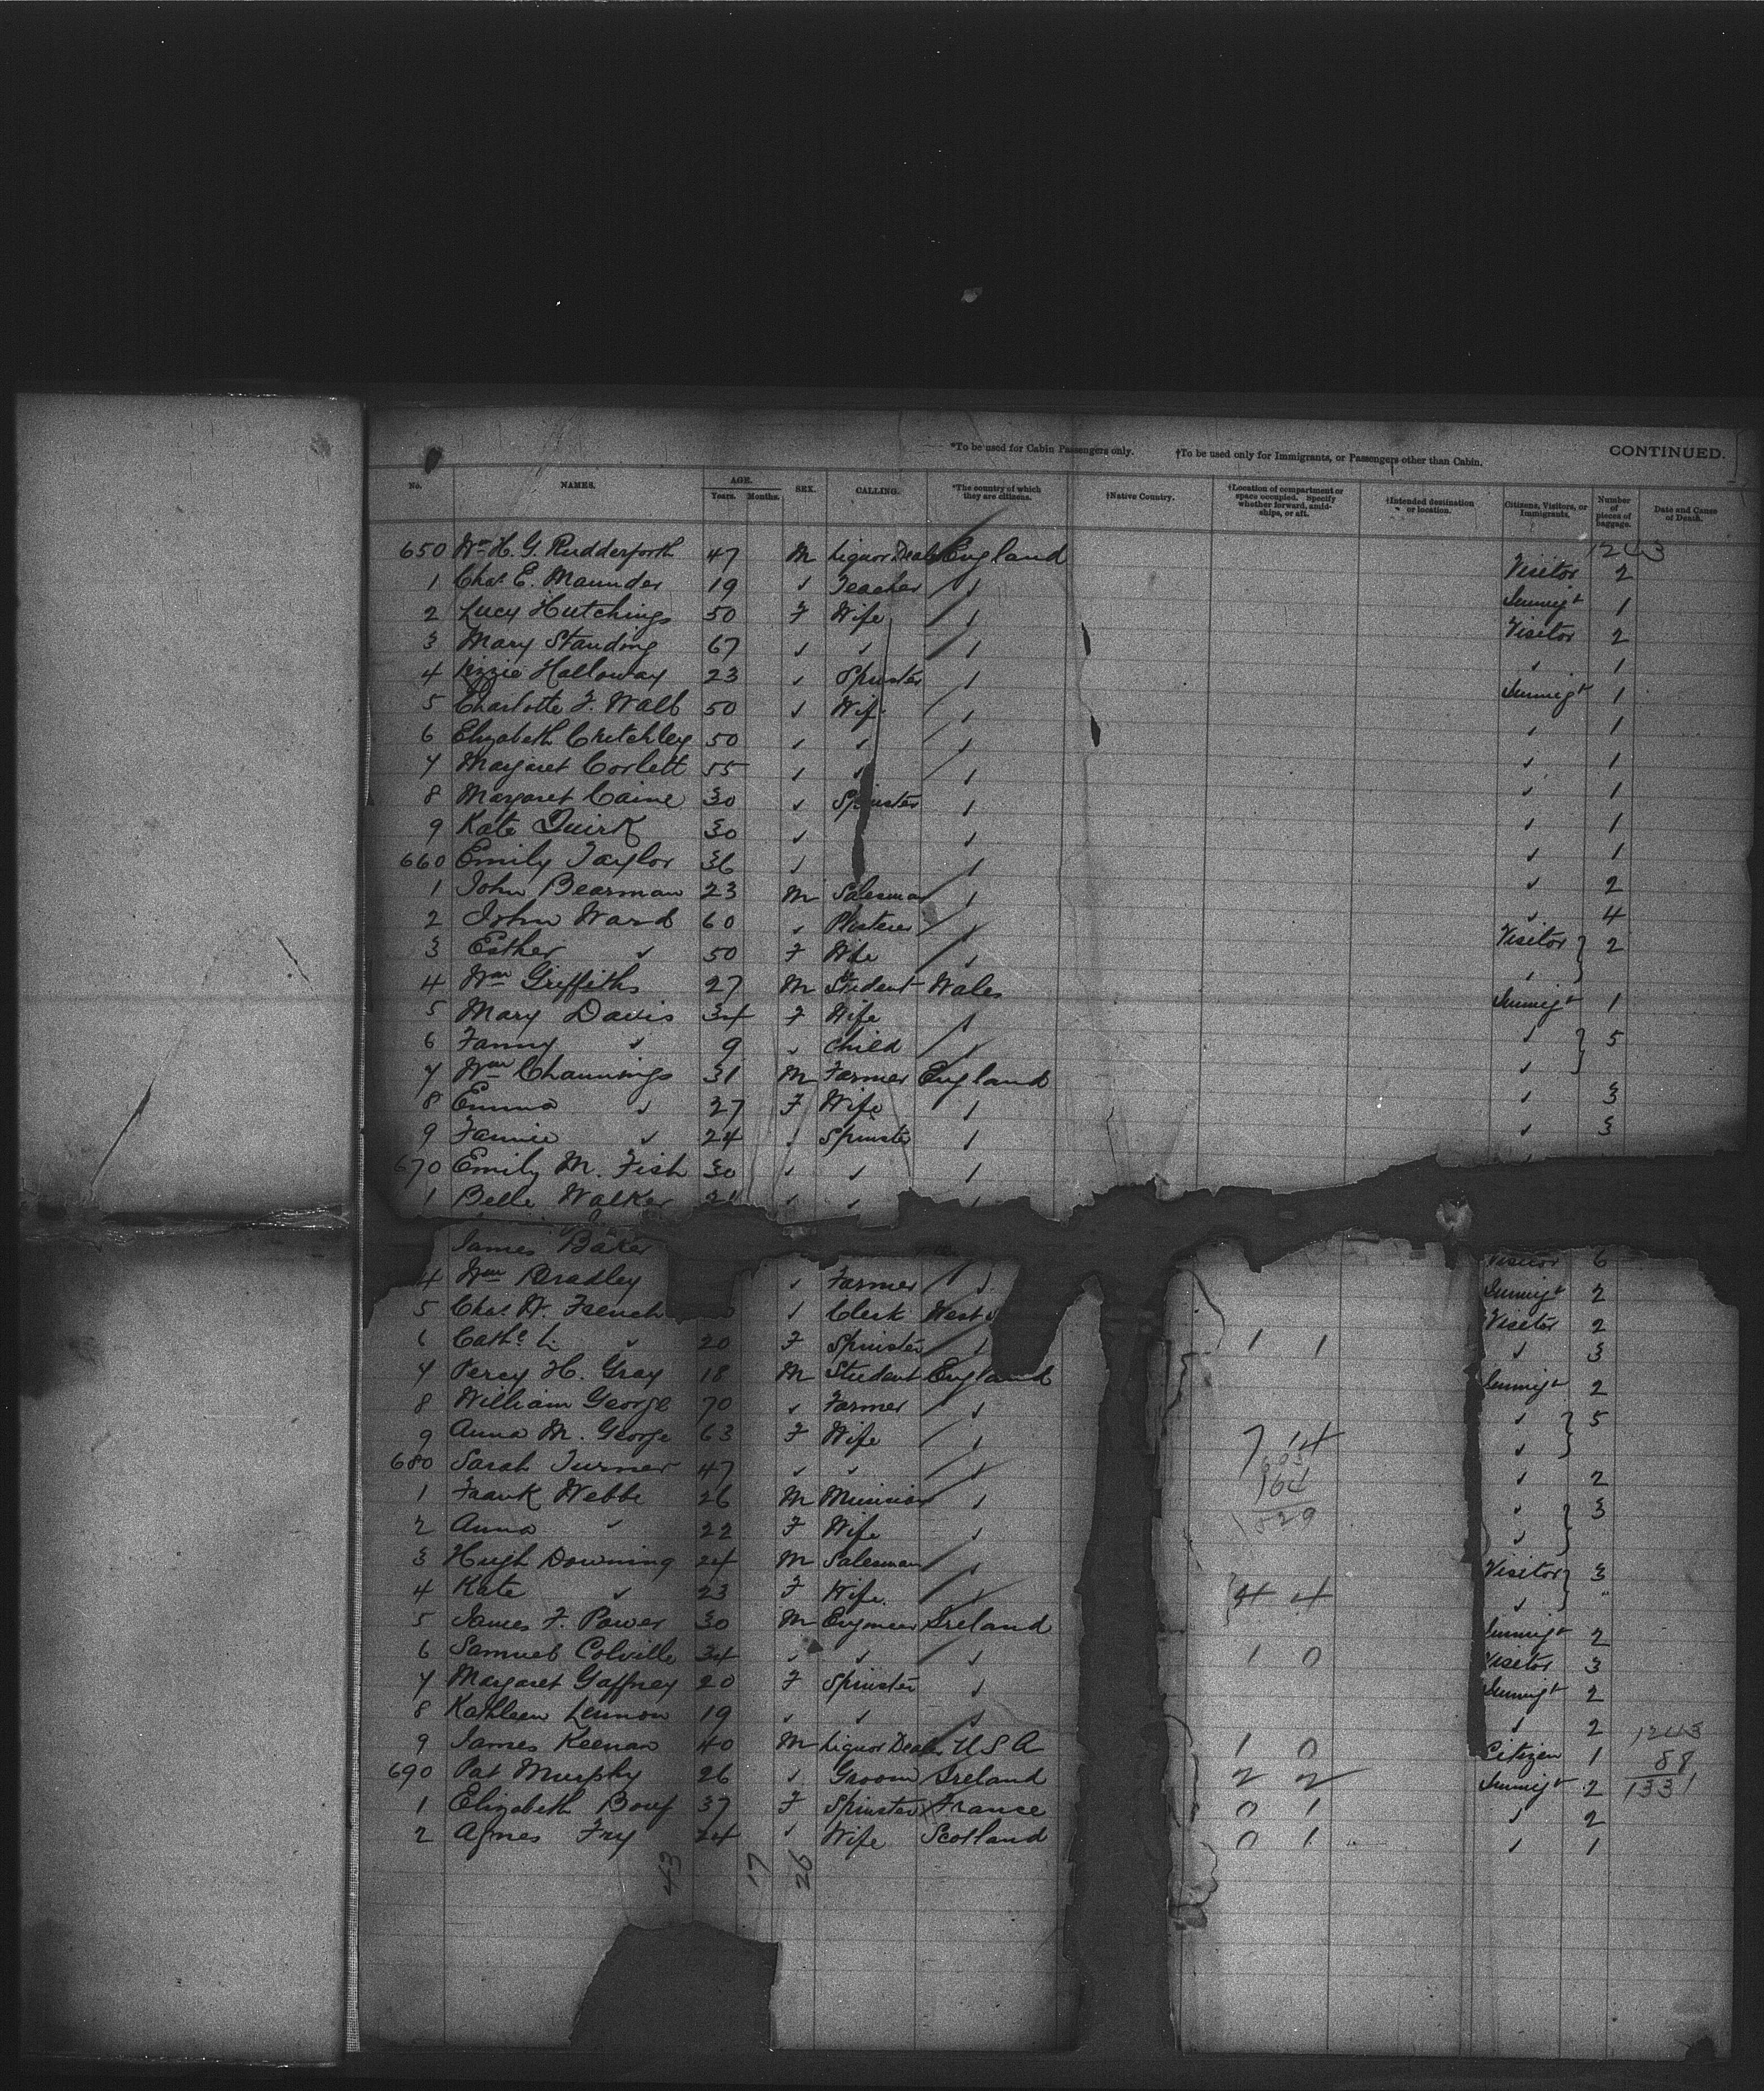 *To be used for Cabin Passengers only. †To be used only for Immigrants, or Passengers other than Cabin. CONTINUED.
No. NAMES. AGE. Years. Months. SEX. CALLING. *The country of which they are citizens. †Native Country. †Location of compartment or space occupied. Specify whether forward, amidships, or aft. †Intended destination or location. Citizens, Visitors, or Immigrants. Number of pieces of baggage. Date and Cause of Death.
1243
650 Wm H. G. Rudderforth 47 M Liquor Dealer England Visitor 2
1 Chas. E. Maunder 19 ✓ Teacher ✓ Immigt 1
2 Lucy Hutchings 50 F Wife ✓ Visitor 2
3 Mary Standing 67 ✓ ✓ ✓ ✓ 1
4 Lizzie Halloway 23 ✓ Spinster ✓ Immigt 1
5 Charlotte F. Walb 50 ✓ Wife ✓ ✓ 1
6 Elizabeth Critchley 50 ✓ ✓ ✓ ✓ 1
7 Margaret Corlett 55 ✓ ✓ ✓ ✓ 1
8 Margaret Caine 30 ✓ Spinster ✓ ✓ 1
9 Kate Quirk 30 ✓ ✓ ✓ 1
660 Emily Taylor 36 ✓ ✓ ✓ 2
1 John Bearman 23 M Salesman ✓ ✓ 4
2 John Ward 60 ✓ Plasterer ✓ Visitor } 2
3 Esther ✓ 50 F Wife ✓ ✓
4 Wm Griffiths 27 M Student Wales Immigt 1
5 Mary Davis 34 F Wife ✓ ✓ } 5
6 Fanny ✓ 9 ✓ Child ✓ ✓
7 Wm Channings 31 M Farmer England ✓ 3
8 Emma ✓ 27 F Wife ✓ ✓ 3
9 Fannie ✓ 24 ✓ Spinster ✓
670 Emily M. Fish 30 ✓ ✓ ✓
1 Belle Walker ✓ ✓
James Baker Visitor 6
4 Wm Bradley ✓ Farmer ✓ Immigt 2
5 Chas. W. French ✓ Clerk West Visitor 2
6 Cathe L. ✓ 20 F Spinster ✓ 1 1 ✓ 3
7 Percy H. Gray 18 M Student England Immigt 2
8 William George 70 ✓ Farmer ✓ ✓ } 5
9 Anna M. George 63 F Wife ✓ 7 14 ✓
680 Sarah Turner 47 ✓ ✓ ✓ ✓ 2
1 Frank Webbe 26 M Musician ✓ 164 ✓ } 3
2 Anna ✓ 22 F Wife ✓ 829 ✓
3 Hugh Downing 24 M Salesman ✓ Visitor } 3
4 Kate ✓ 23 F Wife ✓ 4 4 ✓ "
5 James F. Power 30 M Engineer Ireland Immigt 2
6 Samuel Colville 34 ✓ ✓ ✓ 1 0 Visitor 3
7 Margaret Gaffney 20 F Spinster ✓ Immigt 2
8 Kathleen Lennon 19 ✓ ✓ ✓ ✓ 2 1243
9 James Keenan 40 M Liquor Dealer U S A 1 0 Citizen 1 88
690 Pat Murphy 26 ✓ Groom Ireland 2 2 Immigt 2 1331
1 Elizabeth Bouf 37 F Spinster France 0 1 ✓ 2
2 Agnes Fry 24 ✓ Wife Scotland 0 1 ✓ 1
43 17 26